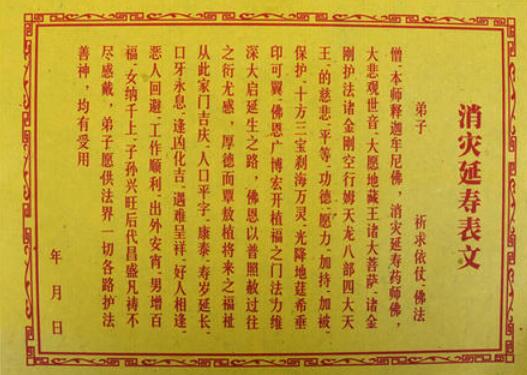 消灾延寿表文
弟子 祈求依仗、佛法
僧、本师释迦牟尼佛，消灾延寿药师佛，
大悲观世音、大愿地藏王诸大菩萨、诸金
刚护法诸金刚空行姆天龙八部四大天
王、的慈悲、平等、功德、愿力、加持、加被、
保护、十方三宝刹海万灵、光降地莛希垂
印可翼、佛恩广博宏开植福之门法力维
深大启延生之路，佛恩以普照赦过往
之衍尤感，厚德而覃敖植将来之福祉
从此家门吉庆、人口平字、康泰、寿岁延长、
口牙永息、逢凶化吉、遇难呈祥、好人相逢、
恶人回避、工作顺利、出外安宵、男增百
福、女纳千上、子孙兴旺后代昌盛凡祷不
尽感戴，弟子愿供法界一切各路护法
善神，均有受用
年 月 日